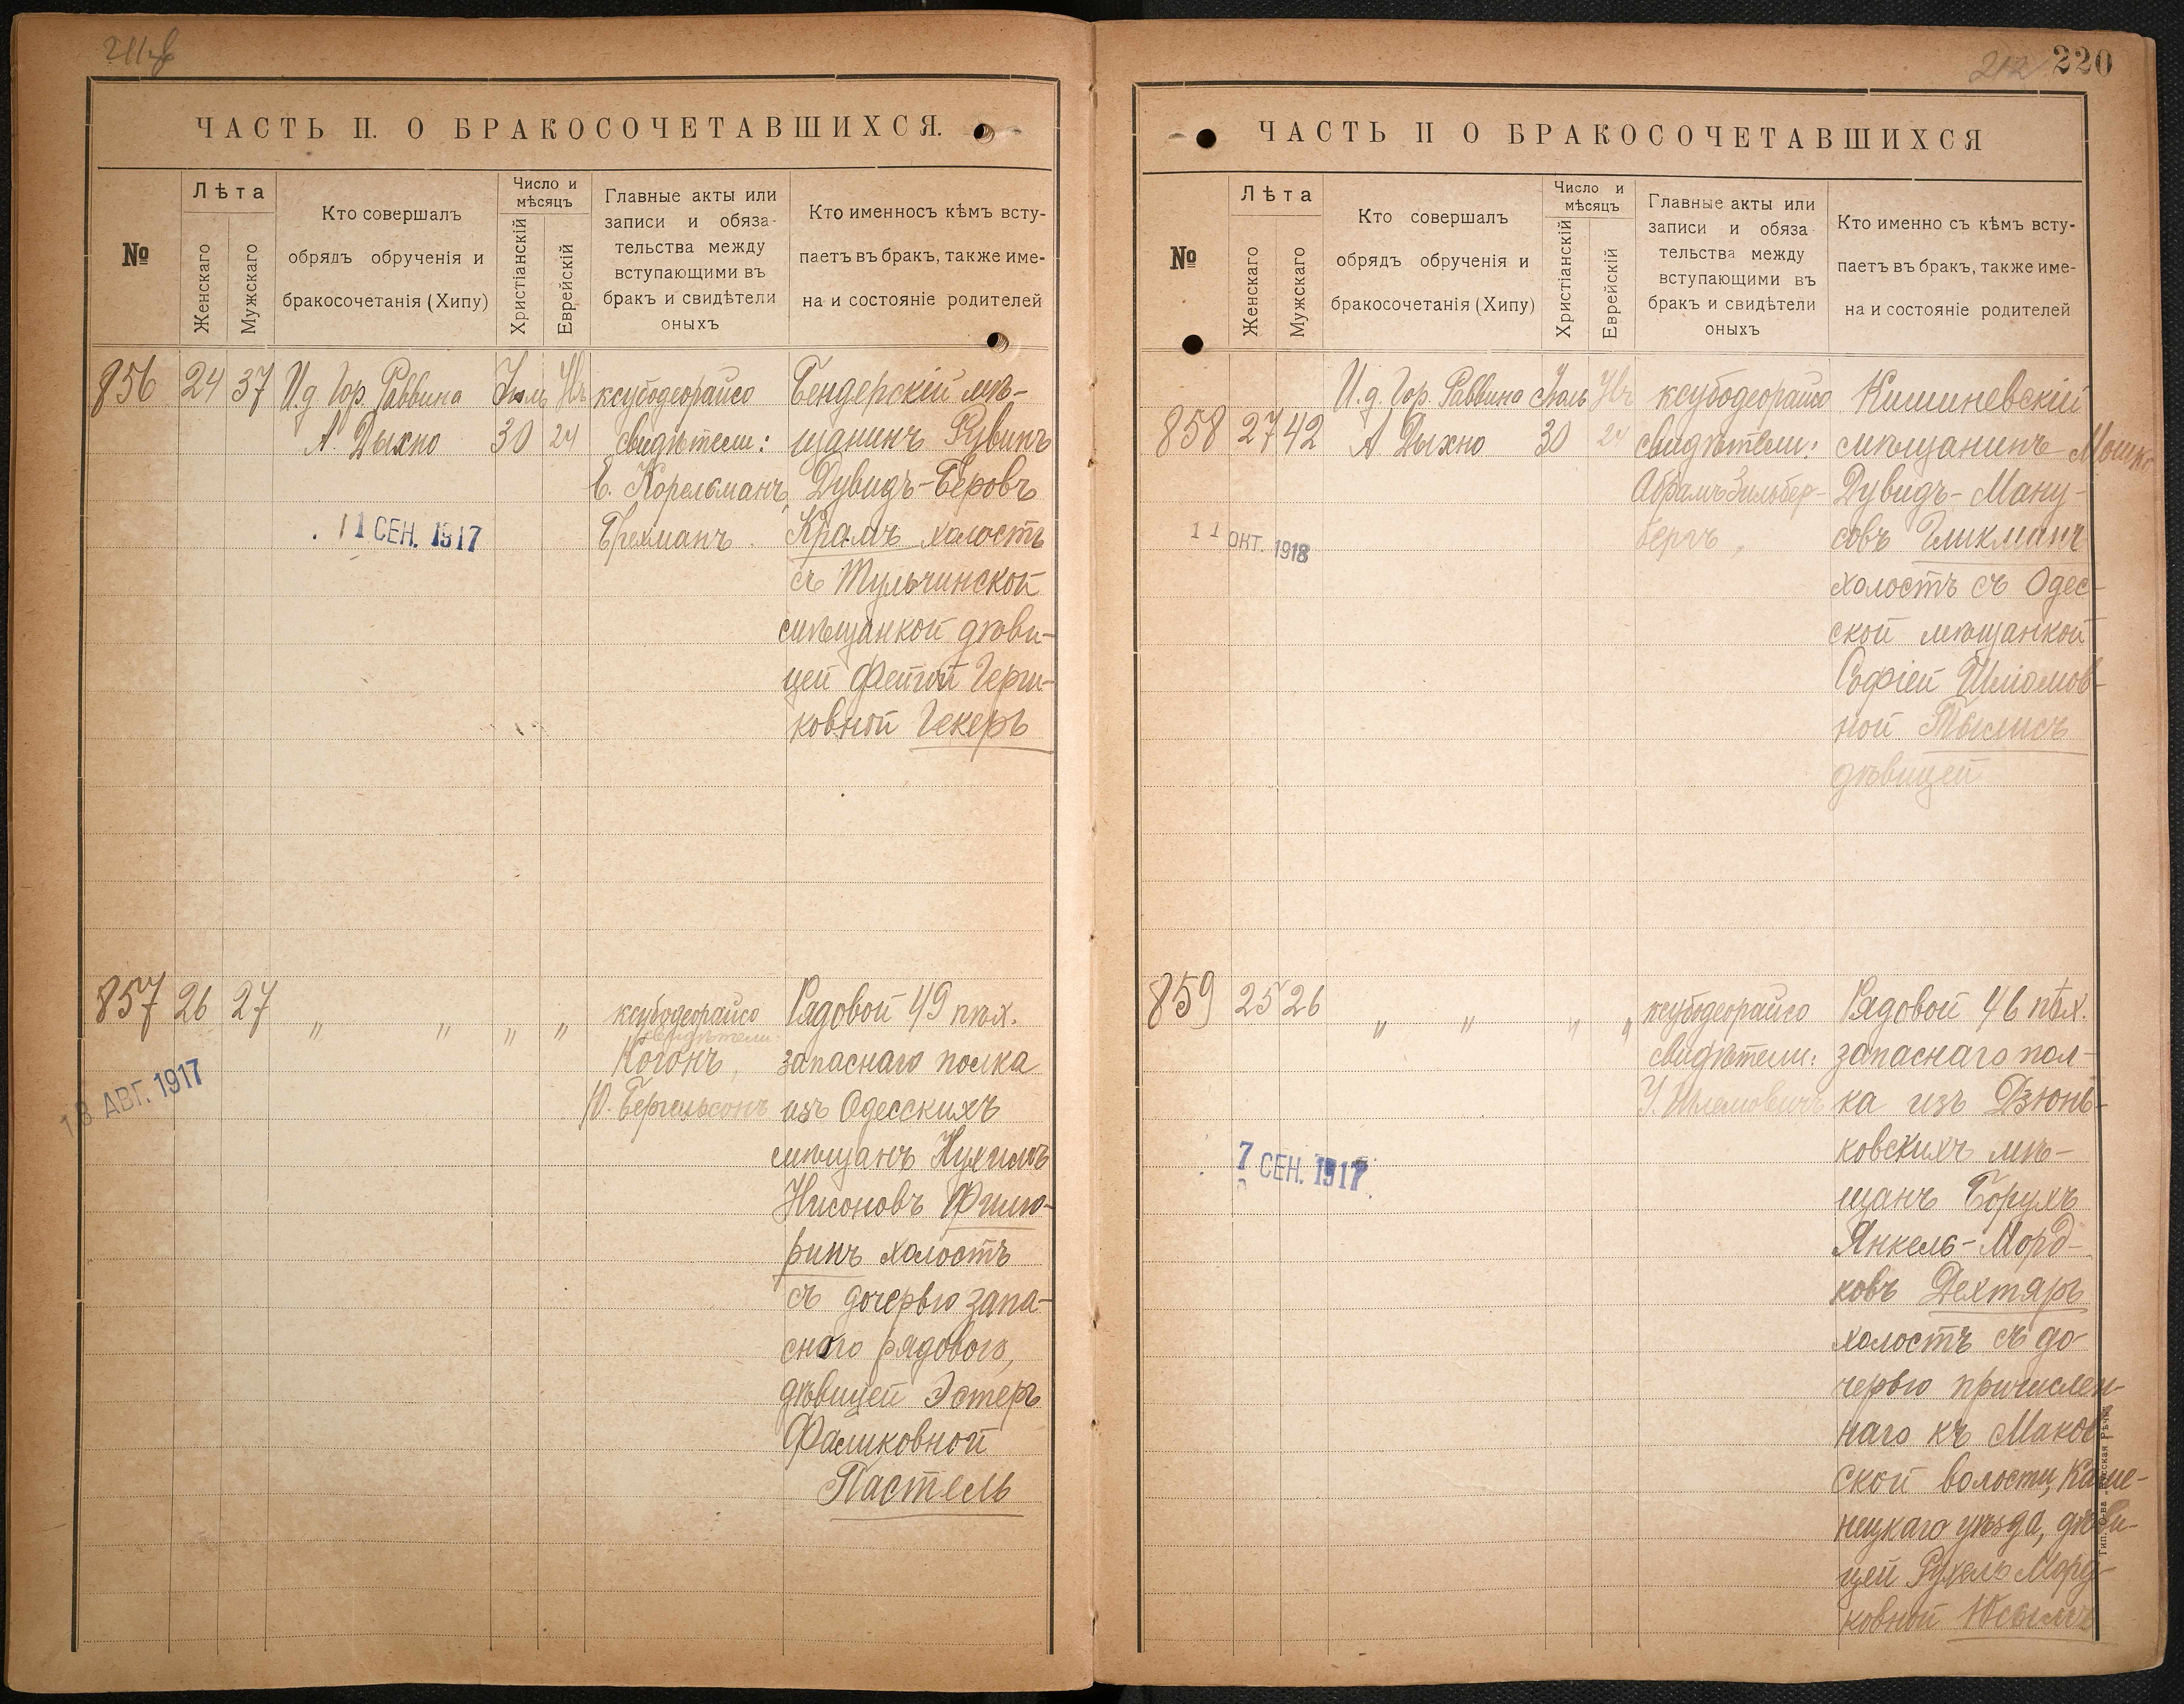 220
ЧАСТЬ II. О БРАКОСОЧЕТАВШИХСЯ.
№
Лѣта
Женскаго
Мужскаго
Кто совершалъ
обрядъ обрученія и
бракосочетанія (Хипу)
Число и
мѣсяцъ
Христіанскій
Еврейскій
Главные акты или
записи и обяза-
тельства между
вступающими въ
бракъ и свидѣтели
оныхъ
Кто именносъ кѣмъ всту-
паетъ въ бракъ, также име-
на и состояніе родителей
856
24
37
И.д. Гор. Раввина
А. Дыхно
Іюль
30
24
ксубодеорайсо
свидѣтели:
Е. Корельманъ,
Брехманъ.
Бендерскій мѣ-
щанинъ Рувинъ
Дувидъ-Беровъ
Крамъ холостъ
съ Тульчинской
мѣщанкой дѣви-
цей Фейгой Герш-
ковной Гекеръ
11 СЕН. 1917
857
26
27
" " " "
ксубодеорайсо
свидѣтели:
Когонъ,
Ю. Бергельсонъ
Рядовой 49 пѣх.
запаснаго полка
изъ Одесскихъ
мѣщанъ Нухимъ
Нисоновъ Фишо-
ринъ холостъ
съ дочерью запа-
сного рядового,
дѣвицей Эстеръ
Фаликовной
Пастель
18 АВГ. 1917
ЧАСТЬ II О БРАКОСОЧЕТАВШИХСЯ
№
Лѣта
Женскаго
Мужскаго
Кто совершалъ
обрядъ обрученія и
бракосочетанія (Хипу)
Число и
мѣсяцъ
Христіанскій
Еврейскій
Главные акты или
записи и обяза
тельства между
вступающими въ
бракъ и свидѣтели
оныхъ
Кто именно съ кѣмъ всту-
паетъ въ бракъ, также име-
на и состояніе родителей
858
27
42
И.д. Гор. Раввина
А Дыхно
Іюль
30
24
ксубодеорайсо
свидѣтели:
Абрамъ Зильбер-
бергъ,
Кишиневскій
мѣщанинъ Мошко
Дувидъ-Ману-
совъ Гликманъ
холостъ съ Одес-
ской мѣщанкой
Софіей Шліомов-
ной Тылисъ
дѣвицей
11 ОКТ. 1918
859
25
26
" " " "
ксубодеорайсо
свидѣтели:
У. Шлемовичъ
Рядовой 46 пѣх.
запаснаго пол-
ка изъ Дзюнь-
ковскихъ мѣ-
щанъ Борухъ
Янкель-Морд-
ковъ Дехтяръ
холостъ съ до-
черью причислен-
наго къ Маков-
ской волости, Каме-
нецкаго уѣзда, дѣви-
цей Рухель Морд-
ковной
7 СЕН. 1917